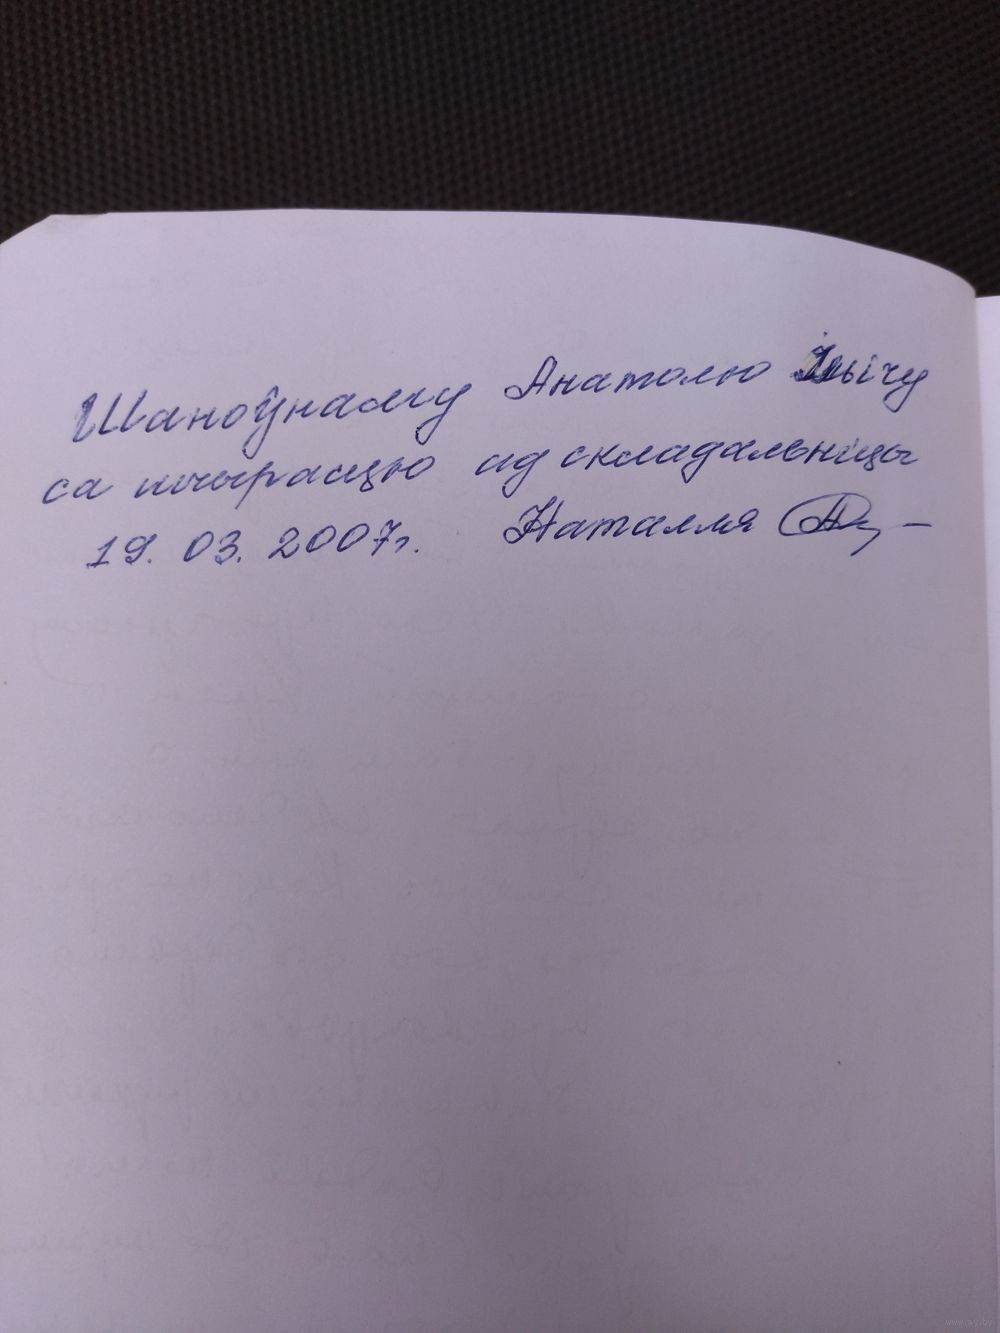 Шаноўнаму Анатолю Ільічу
са шчырасцю ад складальніцы
19. 03. 2007г. Наталля
www.ay.by